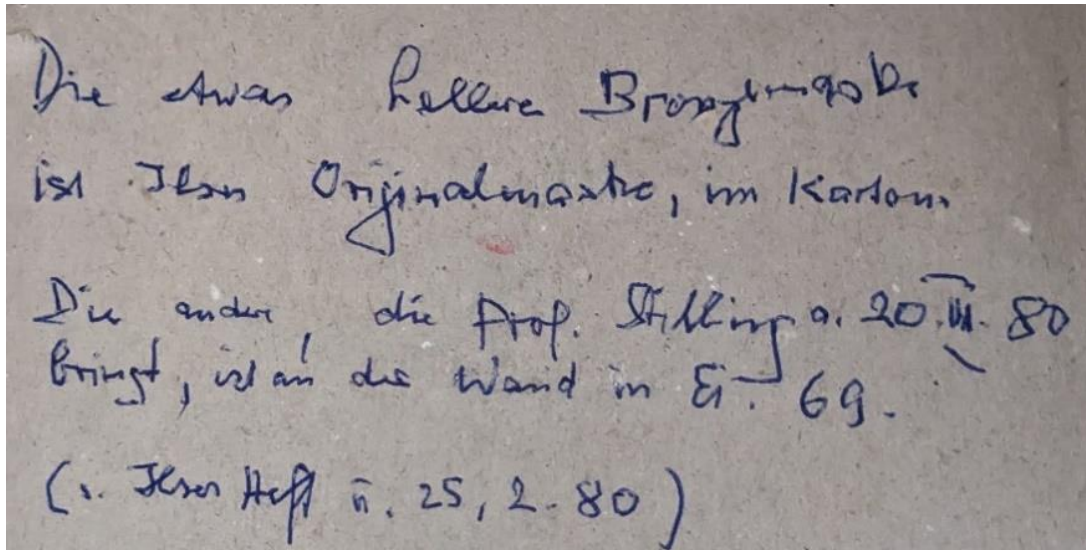 Die etwas hellere
ist Ihre Originalmaske, im Karton.
Die andere, die Prof. Stilling a. 20. III. 80
bringt, ist an der Wand in Ei. 69.
(s. Heft 25, 2. 80)